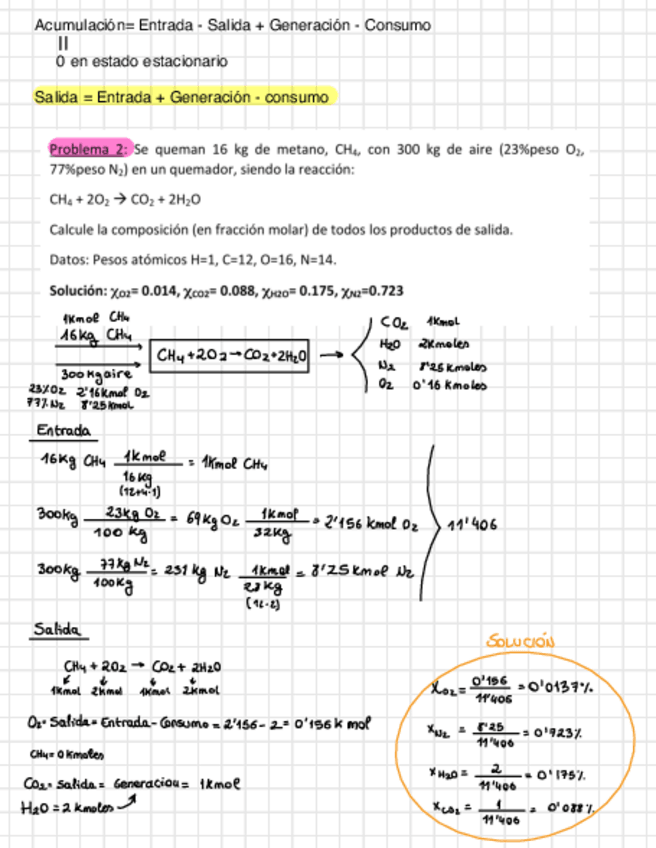 Acumulación= Entrada - Salida + Generación - Consumo
||
0 en estado estacionario
Salida = Entrada + Generación - consumo
Problema 2: Se queman 16 kg de metano, CH₄, con 300 kg de aire (23%peso O₂,
77%peso N₂) en un quemador, siendo la reacción:
CH₄ + 2O₂ → CO₂ + 2H₂O
Calcule la composición (en fracción molar) de todos los productos de salida.
Datos: Pesos atómicos H=1, C=12, O=16, N=14.
Solución: χO2= 0.014, χCO2= 0.088, χH2O= 0.175, χN2=0.723
1kmol CH₄
16Kg CH₄
300Kg aire
23%O₂ 2'16kmol O₂
77%N₂ 8'25kmol
CH₄+2O₂→CO₂+2H₂O
CO₂ 1Kmol
H₂O 2Kmoles
N₂ 8'25 Kmoles
O₂ 0'16 Kmoles
Entrada
16Kg CH₄ 1kmol / 16Kg (12+4·1) = 1Kmol CH₄
300kg 23Kg O₂ / 100 Kg = 69Kg O₂ 1Kmol / 32Kg = 2'156 kmol O₂
300kg 77Kg N₂ / 100Kg = 231 Kg N₂ 1Kmol / 28Kg = 8'25 Kmol N₂
11'406
Salida
CH₄ + 2O₂ → CO₂ + 2H₂O
1Kmol 2kmol 1Kmol 2Kmol
O₂= Salida= Entrada-Consumo = 2'156-2= 0'156 k mol
CH₄= 0 Kmoles
CO₂= Salida= Generación= 1Kmol
H₂O = 2 Kmoles
SOLUCIÓN
XO₂= 0'156 / 11'406 = 0'0137%
XN₂ = 8'25 / 11'406 = 0'723%
XH₂O = 2 / 11'406 = 0'175%
XCO₂ = 1 / 11'406 = 0'088%